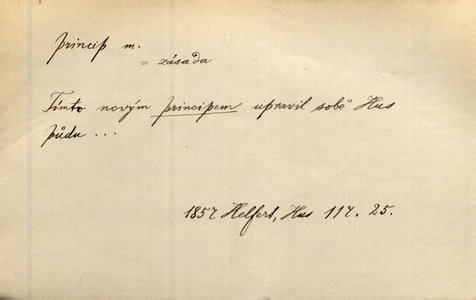 princip m.
= zásada
Tímto novým principem upravil sobě Hus
půdu ...
1857 Helfert, Hus 117. 25.